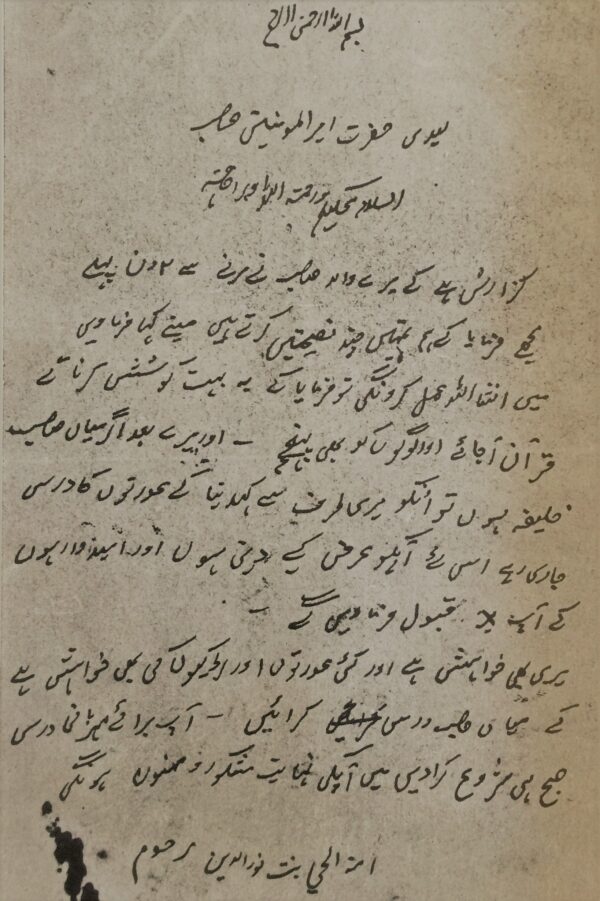 بسم اللہ الرحمن الرحیم
سیدی حضرت امیر المومنین صاحب
السلام علیکم ورحمتہ اللہ وبراکاتہ
گزارش ہے کے میرے والد صاحب نے مرنے سے ۲ دن پہلے
مجھے فرمایا کے ہم تمہیں چند نصیحتیں کرتے ہیں مینے کہا فرماویں
میں انشااللہ عمل کرونگی تو فرمایا کے یہ بہت کوشش کرنا کے
قرآن آجائے اور لوگوں کو بھی پہنچے – اور میرے بعد اگر میاں صاحب
خلیفہ ہوں تو انکو میری طرف سے کہدینا کے عورتوں کا درس
جاری رہے اس لئے آپکو عرض کیے دیتی ہوں اور امیدوار ہوں
کے آپ قبول فرماویں گے –
میری بھی خواہش ہے اور کئی عورتوں اور لڑکیوں کی بھی خواہش ہے
کے میاں صاحب درس کرائیں – آپ برائے مہربانی درس
صبح ہی شروع کرادیں میں آپکی نہایت مشکور و ممنون ہونگی
امۃ الحی بنت نورالدین مرحوم